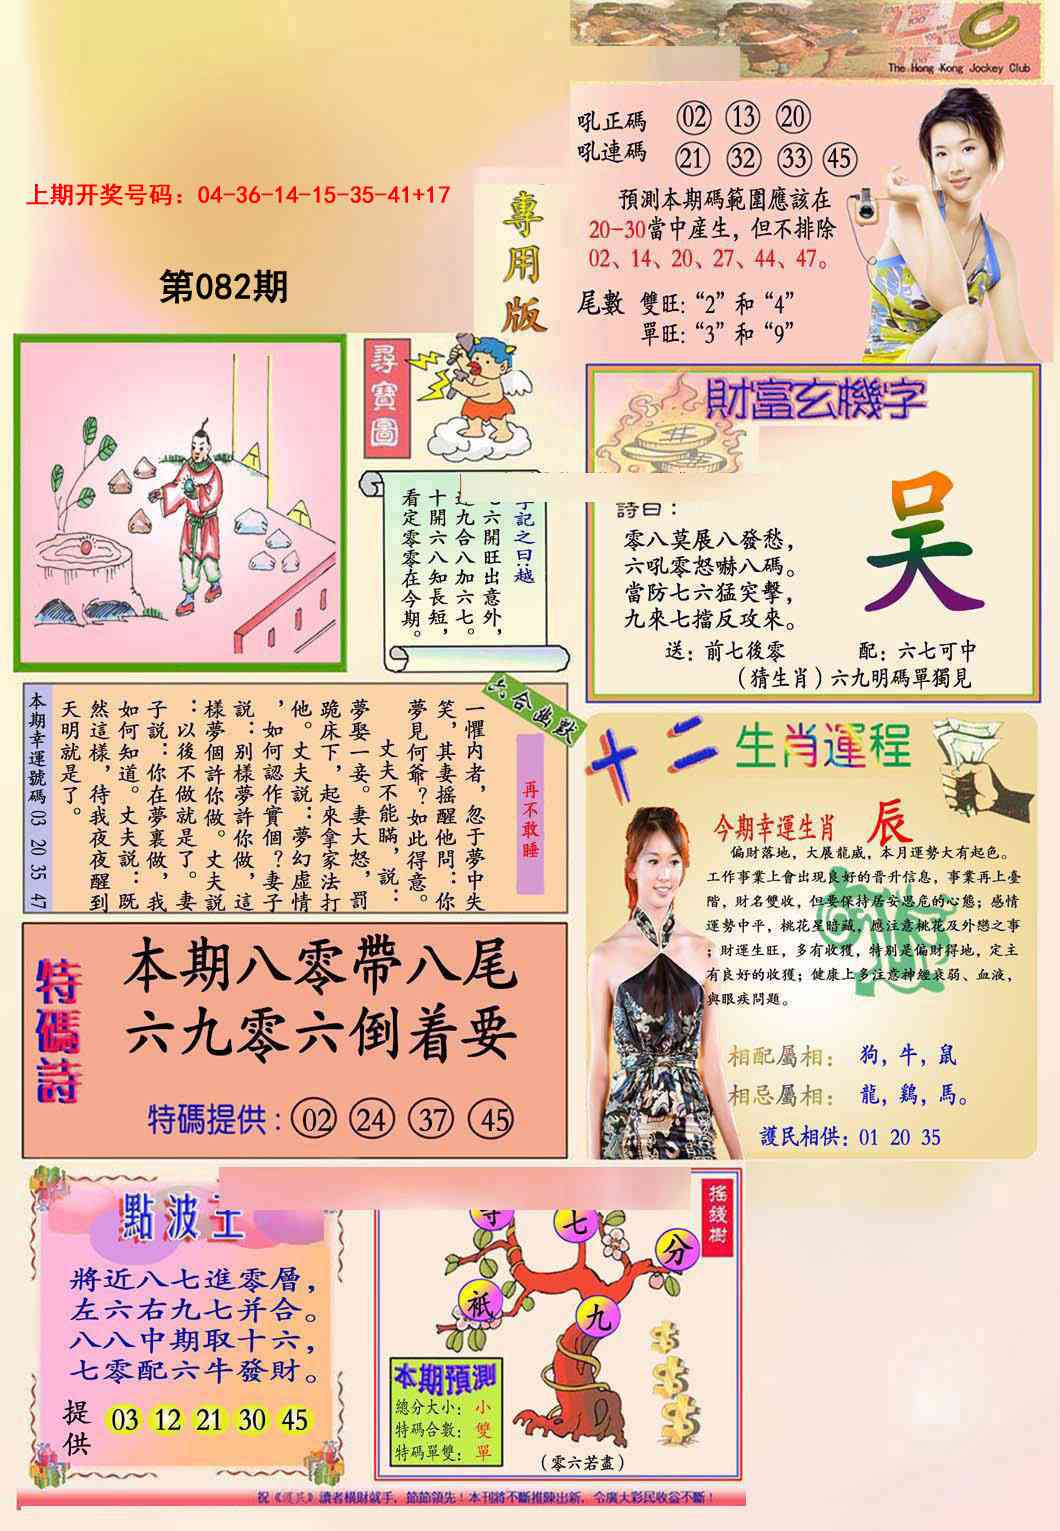 The Hong Kong Jockey Club
吼正碼 02 13 20
吼連碼 21 32 33 45
預測本期碼範圍應該在
20-30當中産生，但不排除
02、14、20、27、44、47。
尾數 雙旺:“2”和“4”
單旺:“3”和“9”
上期开奖号码：04-36-14-15-35-41+17
第082期
專用版
尋寶圖
字記之曰:越
七六開旺出意外，
九合八加六七。
十開六八知長短，
看定零零在今期。
財富玄機字
詩曰：
零八莫展八發愁，
六吼零怒嚇八碼。
當防七六猛突擊，
九來七擋反攻來。
吴
送：前七後零 配：六七可中
（猜生肖）六九明碼單獨見
六合幽默
再不敢睡
一懼内者，忽于夢中失
笑，其妻摇醒他問：你
夢見何爺？如此得意。
丈夫不能瞞，説：
夢娶一妾。妻大怒，罰
跪床下，起來拿家法打
他。丈夫説：夢幻虚情
，如何認作實個？妻子
説：别樣夢許你做，這
樣夢個許你做。丈夫説
：以後不做就是了。妻
子説：你在夢裏做，我
如何知道。丈夫説：既
然這樣，待我夜夜醒到
天明就是了。
本期幸運號碼 03 20 35 47
十二生肖運程
今期幸運生肖 辰
偏財落地，大展龍威，本月運勢大有起色。
工作事業上會出現良好的晉升信息，事業再上臺
階，財名雙收，但要保持居安思危的心態；感情
運勢中平，桃花星暗藏，應注意桃花及外戀之事
；財運生旺，多有收獲，特别是偏財得地，定主
有良好的收獲；健康上多注意神經衰弱、血液，
與眼疾問題。
相配屬相： 狗，牛，鼠
相忌屬相： 龍，鷄，馬。
護民相供：01 20 35
特碼詩
本期八零帶八尾
六九零六倒着要
特碼提供：02 24 37 45
點波王
將近八七進零層，
左六右九七并合。
八八中期取十六，
七零配六牛發財。
提供 03 12 21 30 45
摇錢樹
七
八分
祇
九
本期預測
總分大小：小
特碼合數：雙
特碼單雙：單
（零六若盡）
祝《護民》讀者横財就手，節節領先！本刊將不斷推陳出新，令廣大彩民收益不斷！